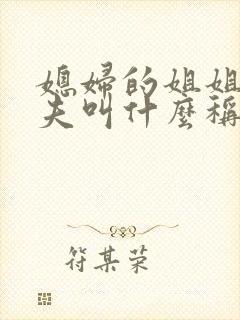 媳婦的姐姐
夫叫什麼稱
符某荣